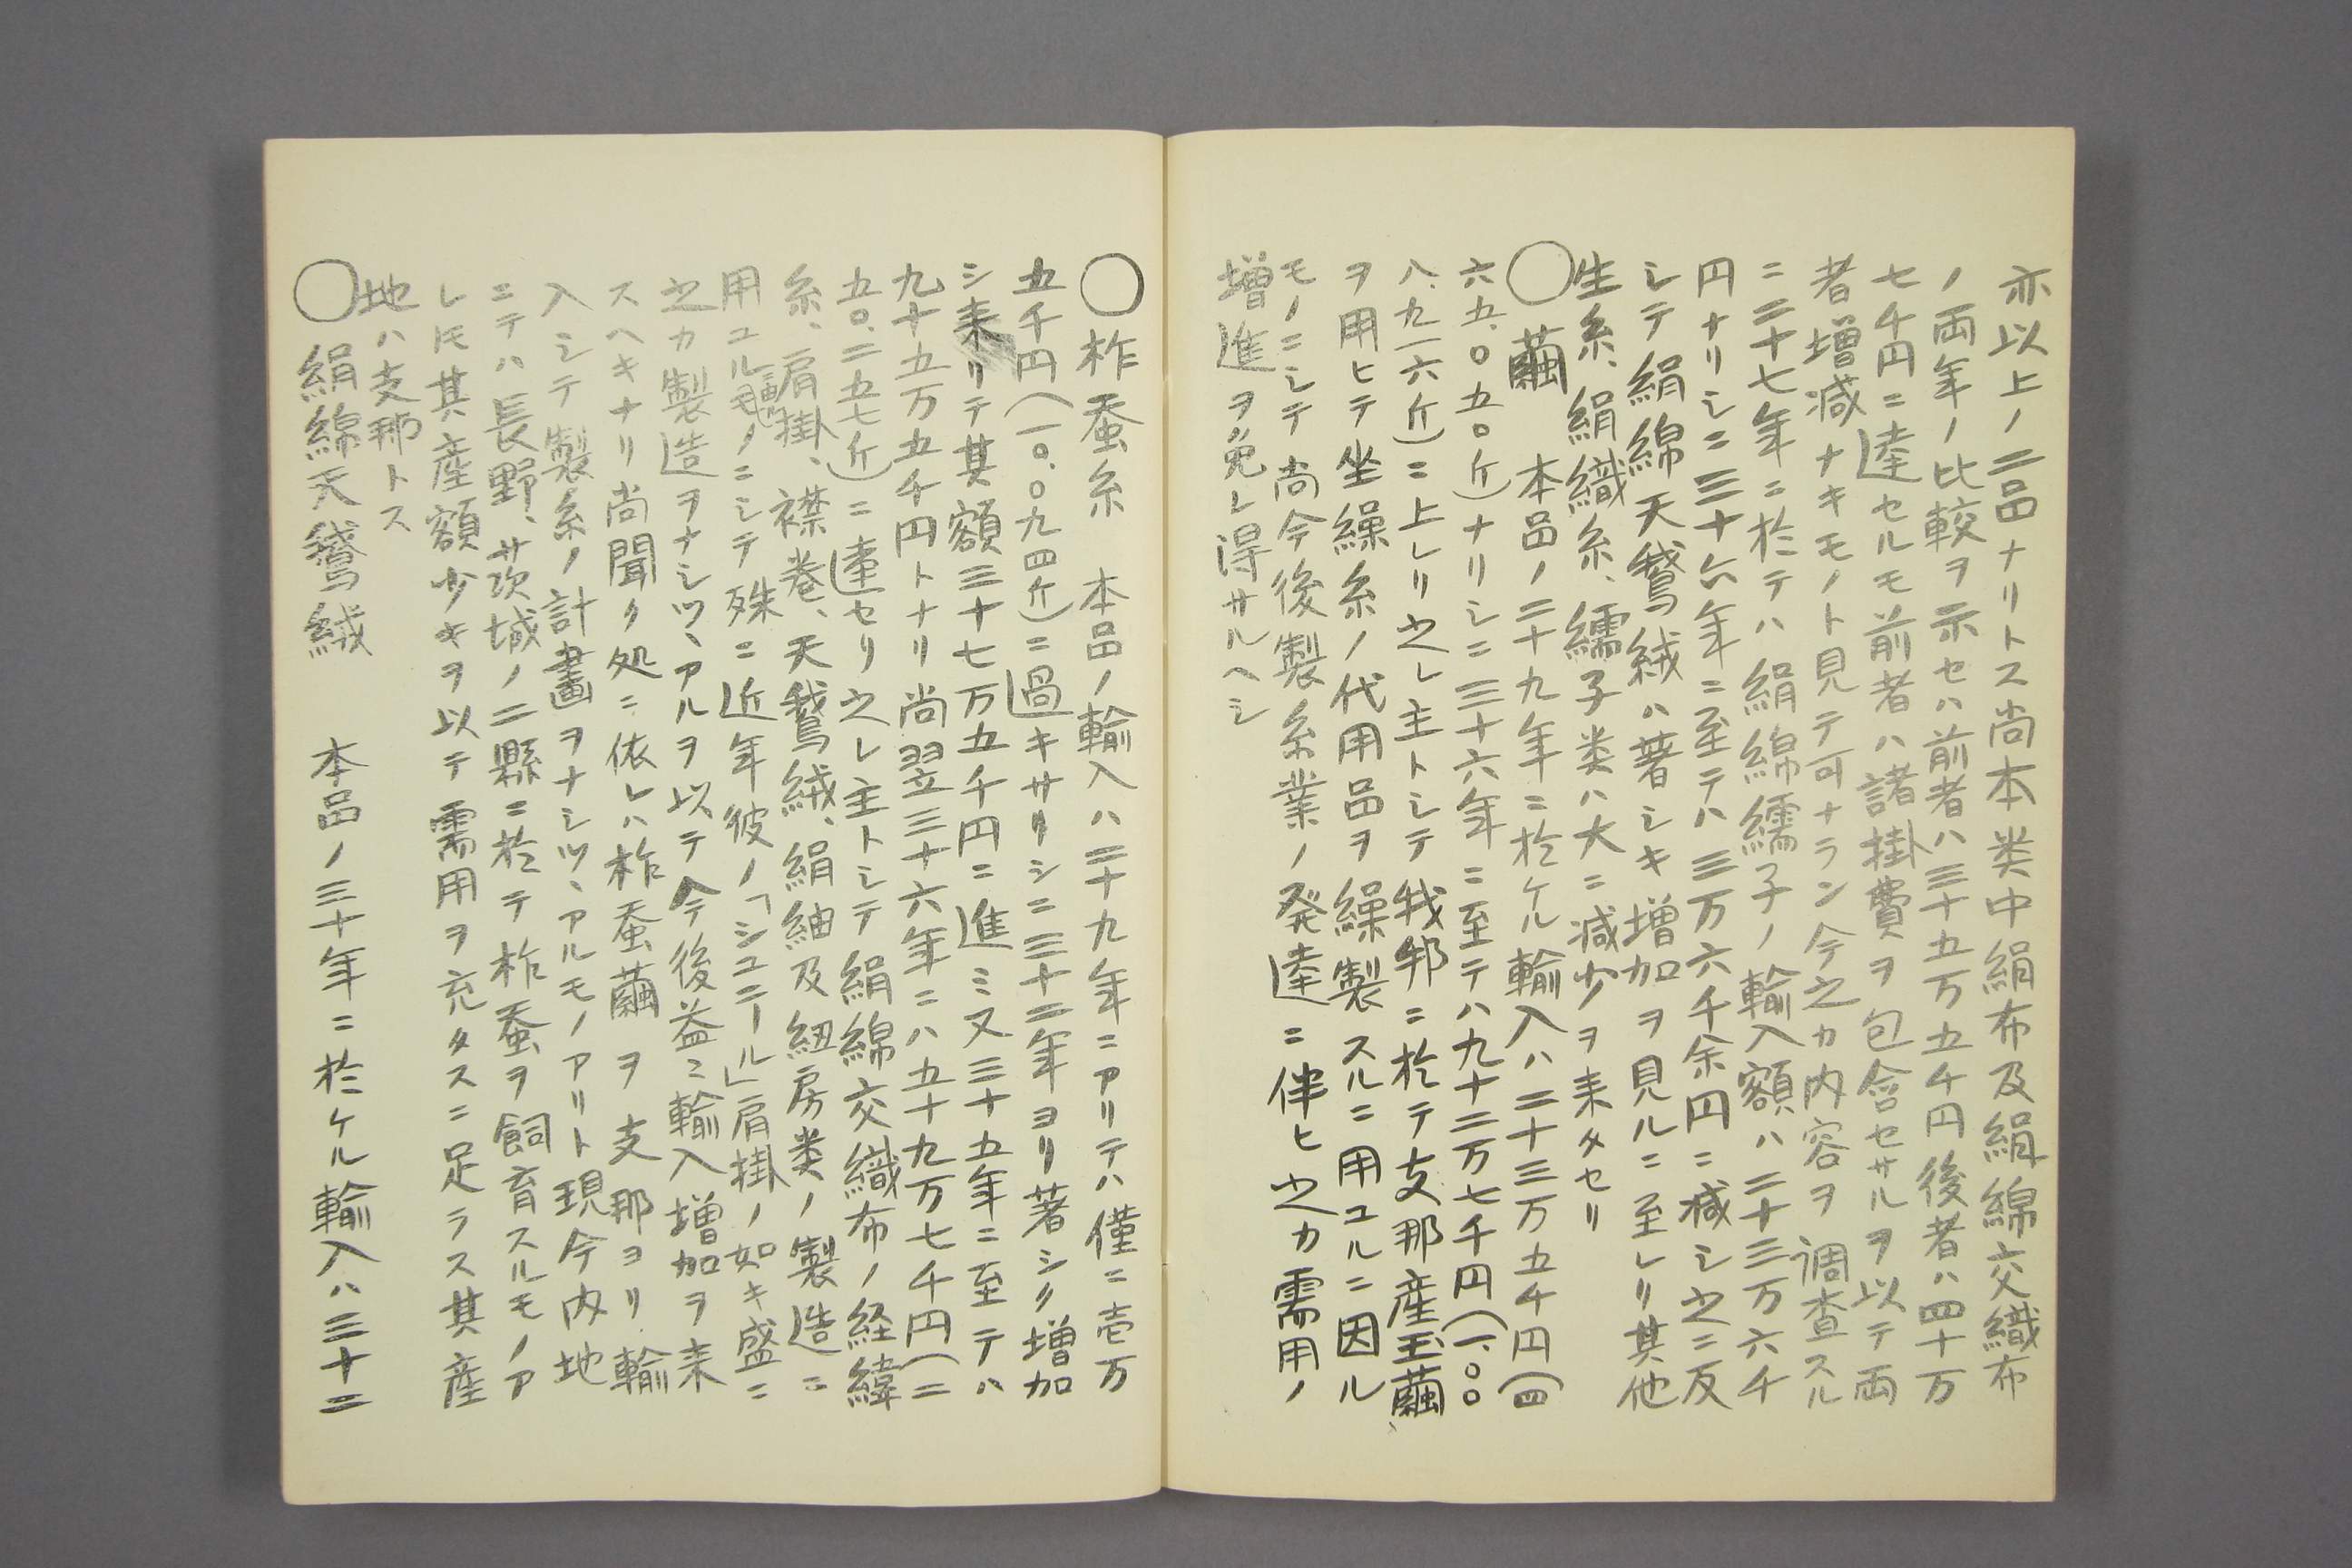 亦以上ノ二品ナリトス尚本类中絹布及絹綿交織布
ノ両年ノ比較ヲ示セハ前者ハ三十五万五千円後者ハ四十万
七千円ニ達セルモ前者ハ諸掛費ヲ包含セサルヲ以テ両
者增减ナキモノト見テ可ナラン今之カ内容ヲ调查スル
ニ二十七年ニ於テハ絹綿繻子ノ輸入額ハ二十三万六千
円ナリシニ三十六年ニ至テハ三万六千余円ニ減シ之ニ反
シテ絹綿天鵞絨ハ著シキ増加ヲ見ルニ至レリ其他
生糸、絹織糸、繻子类ハ大ニ减少ヲ来タセリ
〇繭 本品ノ二十九年ニ於ケル輸入ハ二十三万五千円(四
六五、〇五〇斤)ナリシニ三十六年ニ至テハ九十二万七千円(一、〇〇
八、九一六斤)ニ上レリ之レ主トシテ我邦ニ於テ支那産玉繭
ヲ用ヒテ坐繰糸ノ代用品ヲ繰製スルニ用ユルニ因ル
モノニシテ尚今後製糸業ノ発達ニ伴ヒ之カ需用ノ
増進ヲ免レ得サルヘシ
〇柞蚕糸 本品ノ輸入ハ二十九年ニアリテハ僅ニ壱万
五千円(一〇、〇九四斤)ニ過キサリシニ三十二年ヨリ著シク増加
シ来リテ其額三十七万五千円ニ進ミ又三十五年ニ至テハ
九十五万五千円トナリ尚翌三十六年ニハ五十九万七千円(二
五〇、二五七斤)ニ達セリ之レ主トシテ絹綿交織布ノ経緯
糸、肩掛、襟巻、天鵞絨、絹紬及紐房类ノ製造ニ
用ユルモノニシテ殊ニ近年彼ノ「シユニール」肩掛ノ如キ盛ニ
之カ製造ヲナシツヽアルヲ以テ今後益ニ輸入増加ヲ来
スヘキナリ尚聞ク処ニ依レハ柞蚕繭ヲ支那ヨリ輸
入シテ製糸ノ計畫ヲナシツヽアルモノアリト現今内地
ニテハ長野、茨城ノ二縣ニ於テ柞蚕ヲ飼育スルモノア
レ𪜈其産額少キヲ以テ需用ヲ充タスニ足ラス其産
地ハ支那トス
〇絹綿天鵞絨 本品ノ三十年ニ於ケル輸入ハ三十二